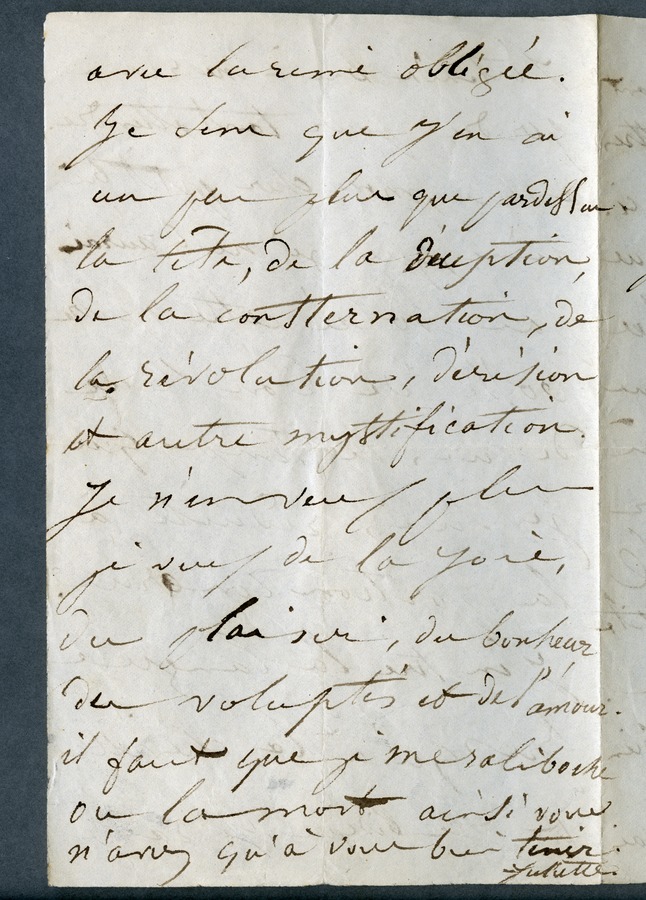 avec la rime obligée.
Je sens que j'en ai
un peu plus que pardessus
la tête, de la déception,
de la consternation, de
la révolution, dérision
et autre mystification.
Je n'en veux plus
je veux de la joie,
du plaisir, du bonheur,
des voluptés et de l'amour.
il faut que je me raliboche
ou la mort ainsi vous
n'avez qu'à vous bien tenir.
Juliette